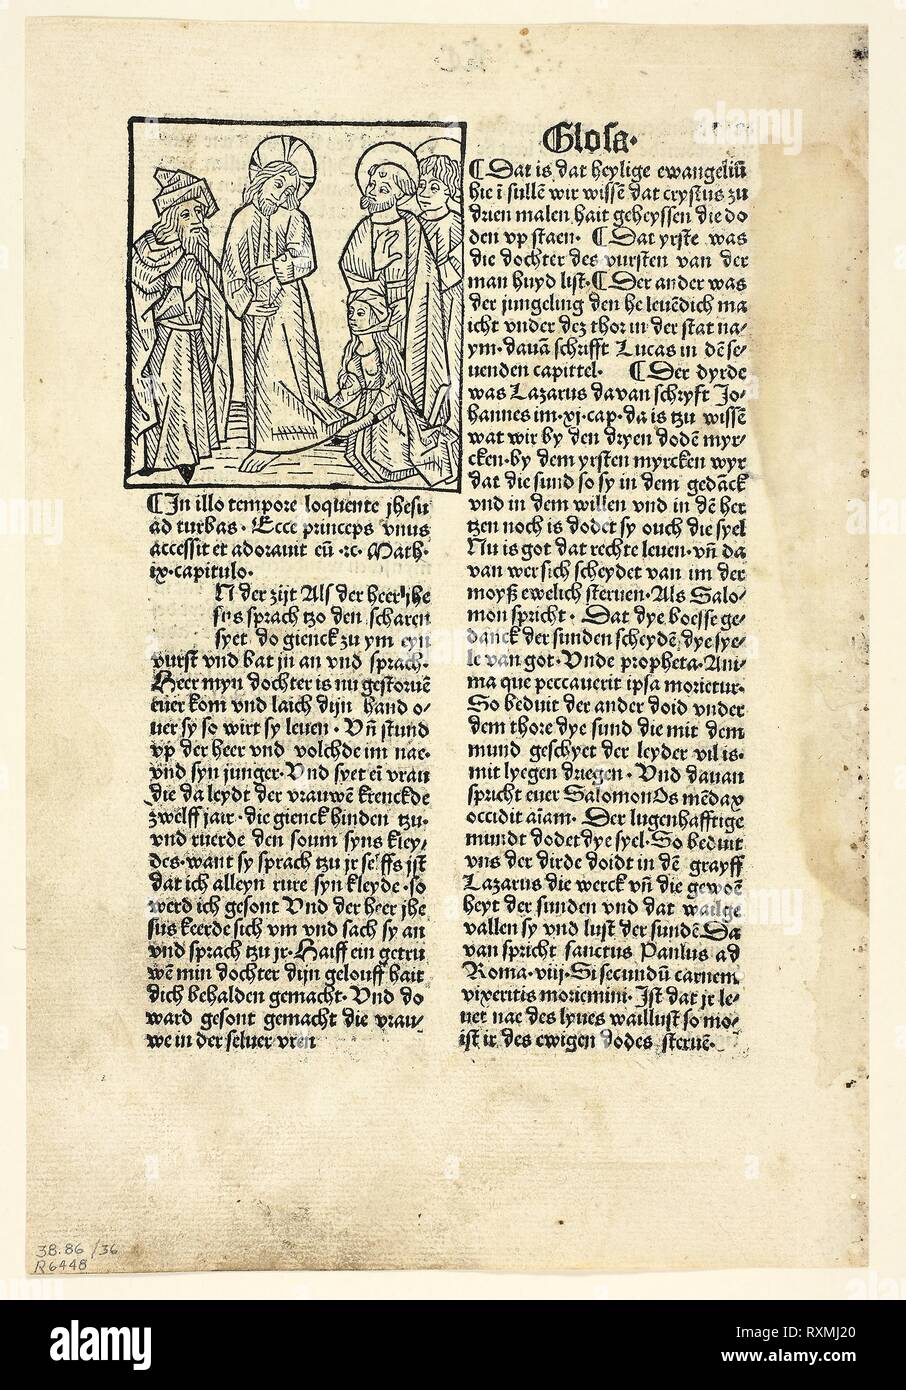 ¶ In illo tempore loquente jhesu
ad turbas · Ecce princeps vnus
accessit et adorauit eū ·⁊c· Math·
ix·capitulo·
N der zijt Als der heer jhe
sus sprach tzo den scharen
syet do gienck zu ym eyn
vurst vnd bat jn an vnd sprach·
Heer myn dochter is nu gestoruē
euer kom vnd laich dijn hand o⸗
uer sy so wirt sy leuen · Vn̄ stund
vp der heer vnd volchde im nae·
vnd syn junger· Vnd syet eī vrau
die da leydt der vrauwē krenckde
zwelff jair · die gienck hinden tzu·
vnd ruerde den soum syns kley⸗
des· want sy sprach tzu jr selffs ist
dat ich alleyn rure syn kleyde · so
werd ich gesont Vnd der heer jhe
sus keerde sich vm vnd sach sy an
vnd sprach tzu jr· Haiff ein getru
wē min dochter dijn gelouff hait
dich behalden gemacht· Vnd do
ward gesont gemacht die vrau⸗
we in der seluer vren
Glosa·
¶ Dat is dat heylige ewangeliū
hie ī sullē wir wissē dat crystus zu
drien malen hait geheyssen die do
den vp staen· ¶ Dat yrste was
die dochter des vursten van der
man huyd list· ¶ Der ander was
der jungeling den he leuēdich ma
icht vnder dez thor in der stat na⸗
ym· dauā schrifft Lucas in dē se⸗
uenden capittel· ¶ Der dyrde
was Lazarus davan schryft Jo⸗
hannes im·xj·cap·da is tzu wissē
wat wir by den dryen dodē myr⸗
cken·by dem yrsten myrcken wyr
dat die sund so sy in dem gedāck
vnd in dem willen vnd in dē her
tzen noch is dodet sy ouch die syel
Nu is got dat rechte leuen·vn̄ da
van wer sich scheydet van im der
moyß ewelich steruen·Als Salo⸗
mon spricht · Dat dye boesse ge⸗
danck der sunden scheydē dye sye⸗
le van got· Vnde propheta·Ani⸗
ma que peccauerit ipsa morietur·
So beduit der ander doid vnder
dem thore dye sund die mit dem
mund geschyet der leyder vil is·
mit lyegen driegen · Vnd dauan
spricht euer Salomon Os mēdax
occidit aīam· Der lugenhafftige
mundt dodet dye syel·So beduit
vns der dirde doidt in dē grayff
Lazarus die werck vn̄ die gewoē
heyt der sunden vnd dat wailge
vallen sy vnd lust der sundē Da
van spricht sanctus Paulus ad
Roma·viij·Si secundū carnem
vixeritis moriemini· Jst dat jr le⸗
uet nae des lyues waillust so mo⸗
ist ir des ewigen dodes steruē·
38.86/36
R6448
alamy
Image ID: RXMJ20
www.alamy.com